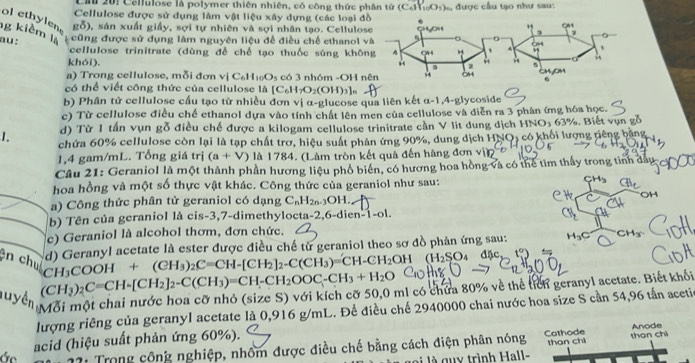 Câu 20: Cellulose là polymer thiên nhiên, có công thức phân tử (C₆H₁₀O₅)ₙ, được cấu tạo như sau:
Cellulose được sử dụng làm vật liệu xây dựng (các loại đồ
gỗ), sản xuất giấy, sợi tự nhiên và sợi nhân tạo. Cellulose
cũng được sử dụng làm nguyên liệu để điều chế ethanol và
cellulose trinitrate (dùng để chế tạo thuốc súng không
khói).
ol ethylene
g kiềm là
au:
CH₂OH
a) Trong cellulose, mỗi đơn vị C₆H₁₀O₅ có 3 nhóm -OH nên
có thể viết công thức của cellulose là [C₆H₇O₂(OH)₃]ₙ
b) Phân tử cellulose cấu tạo từ nhiều đơn vị α-glucose qua liên kết α-1,4-glycoside
c) Từ cellulose điều chế ethanol dựa vào tính chất lên men của cellulose và diễn ra 3 phản ứng hóa học.
d) Từ 1 tấn vụn gỗ điều chế được a kilogam cellulose trinitrate cần V lít dung dịch HNO₃ 63%. Biết vụn gỗ
chứa 60% cellulose còn lại là tạp chất trơ, hiệu suất phản ứng 90%, dung dịch HNO₃ có khối lượng riêng bằng
1,4 gam/mL. Tổng giá trị (a + V) là 1784. (Làm tròn kết quả đến hàng đơn vị)
1.
Câu 21: Geraniol là một thành phần hương liệu phổ biến, có hương hoa hồng và có thể tìm thấy trong tinh dầu
hoa hồng và một số thực vật khác. Công thức của geraniol như sau:
a) Công thức phân tử geraniol có dạng CₙH₂ₙ₋₃OH.
b) Tên của geraniol là cis-3,7-dimethylocta-2,6-dien-1-ol.
c) Geraniol là alcohol thơm, đơn chức.
d) Geranyl acetate là ester được điều chế từ geraniol theo sơ đồ phản ứng sau:
CH₃
OH
H₃C
CH₃
CH₃COOH + (CH₃)₂C=CH-[CH₂]₂-C(CH₃)=CH-CH₂OH (H₂SO₄ đặc, t°) ⇋
(CH₃)₂C=CH-[CH₂]₂-C(CH₃)=CH-CH₂OOC-CH₃ + H₂O
Mỗi một chai nước hoa cỡ nhỏ (size S) với kích cỡ 50,0 ml có chứa 80% về thể tích geranyl acetate. Biết khối
lượng riêng của geranyl acetate là 0,916 g/mL. Để điều chế 2940000 chai nước hoa size S cần 54,96 tấn aceti
acid (hiệu suất phản ứng 60%).
Trong công nghiệp, nhôm được điều chế bằng cách điện phân nóng
quy trình Hall-
Cathode
than chì
Anode
than chì